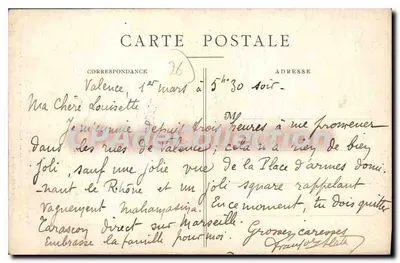 CARTE POSTALE
26
CORRESPONDANCE
ADRESSE
Valence, 1er mars à 5h 30 soir -
Ma Chère Louisette :
Je m'ennuie depuis trois heures à me promener
dans les rues de Valence, cela n'a rien de bien
joli, sauf une jolie vue de la Place d'armes domi-
nant le Rhône et un joli square rappelant
vaguement Mahamasina. En ce moment, tu dois quitter
Tarascon direct sur Marseille. Grosses caresses
Embrasse la famille pour moi.